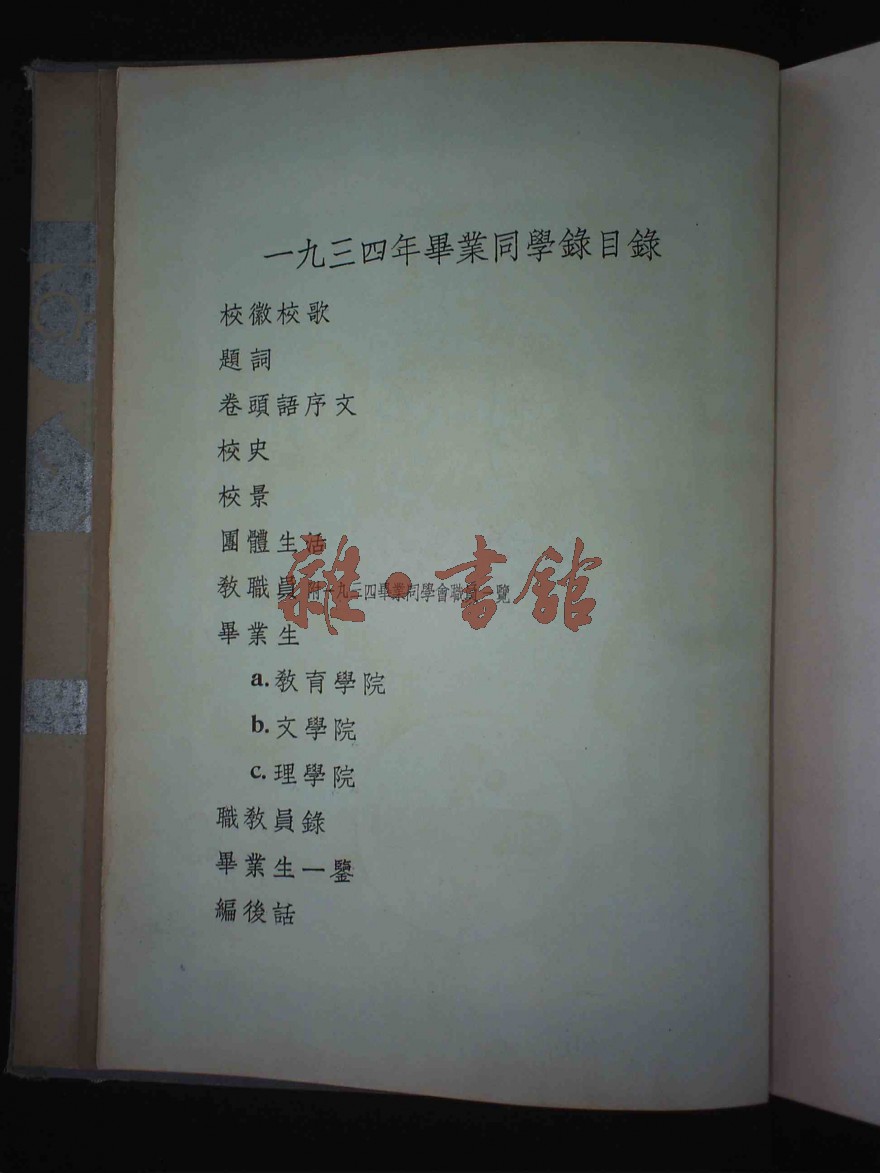 一九三四年畢業同學錄目錄
校徽校歌
題詞
卷頭語序文
校史
校景
團體生活
教職員 附一九三四畢業同學會職員一覽
雜·書舘
畢業生
a. 教育學院
b. 文學院
c. 理學院
職教員錄
畢業生一鑒
編後話